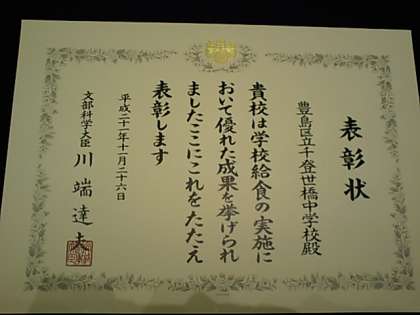 表彰状
豊島区立千登世橋中学校殿
貴校は学校給食の実施に
おいて優れた成果を挙げられ
ましたここにこれをたたえ
表彰します
平成二十一年十一月二十六日
文部科学大臣 川端達夫